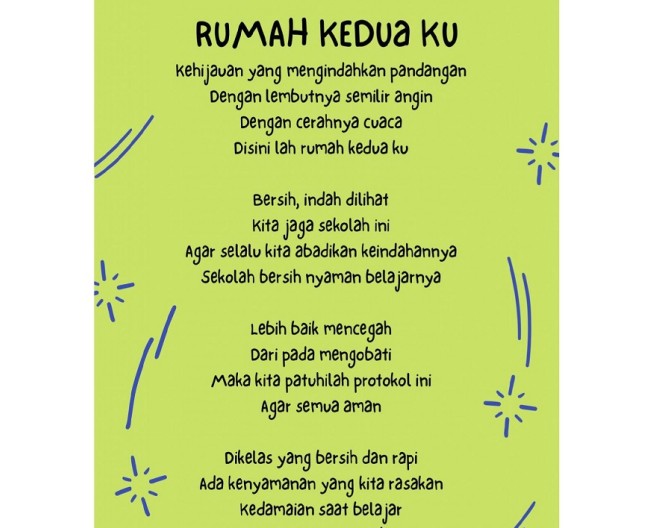 RUMAH KEDUA KU
Kehijauan yang mengindahkan pandangan
Dengan lembutnya semilir angin
Dengan cerahnya cuaca
Disini lah rumah kedua ku
Bersih, indah dilihat
Kita jaga sekolah ini
Agar selalu kita abadikan keindahannya
Sekolah bersih nyaman belajarnya
Lebih baik mencegah
Dari pada mengobati
Maka kita patuhilah protokol ini
Agar semua aman
Dikelas yang bersih dan rapi
Ada kenyamanan yang kita rasakan
Kedamaian saat belajar